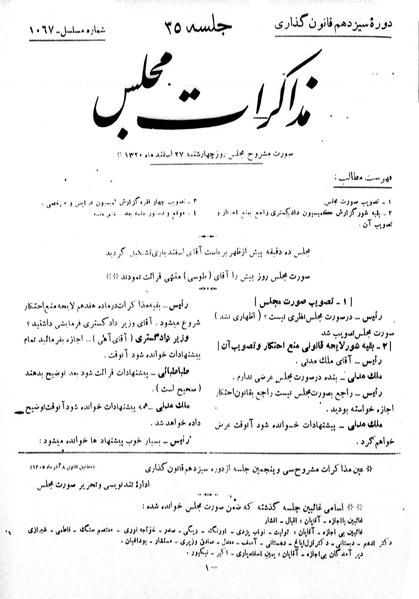 دورهٔ سیزدهم قانون گذاری
جلسه ۳۵
شماره مسلسل - ۱۰۶۷
مذاکرات مجلس
صورت مشروح مجلس روز چهارشنبه ۲۷ اسفند ماه ۱۳۲۰
فهرست مطالب:
۱ - تصویب صورت مجلس
۲ - بقیه شور گزارش کمیسیون دادگستری راجع بمنع احتکار و
تصویب آن.
۳ - تصویب چهار فقره گزارش کمیسیون عرایض و مرخصی.
۴ - موقع و دستور جلسه بعد - ختم جلسه
مجلس ده دقیقه پیش از ظهر بریاست آقای اسفندیاری تشکیل گردید
صورت مجلس روز پیش را آقای (طوسی) منشی قرائت نمودند
[۱ - تصویب صورت مجلس]
رئیس - در صورت مجلس نظری نیست؟ (اظهاری نشد)
صورت مجلس تصویب شد
[۲ - بقیه شور لایحه قانونی منع احتکار و تصویب آن]
رئیس - آقای ملک مدنی.
ملک مدنی - بنده در صورت مجلس عرضی ندارم.
رئیس - راجع بصورت مجلس نیست راجع بقانون احتکار
اجازه خواسته بودید.
ملک مدنی - پیشنهادات خوانده شود آنوقت عرض
خواهم کرد.
رئیس - بقیه مذاکرات در ماده هفدهم لایحه منع احتکار
شروع میشود. آقای وزیر دادگستری فرمایشی داشتید؟
وزیر دادگستری (آقای آهی) - اجازه بفرمائید تمام
پیشنهادات خوانده شود آنوقت.
طباطبائی - پیشنهادات قرائت شود بعد توضیح بدهند
(صحیح است).
ملک مدنی - همه پیشنهادات خوانده شود آنوقت توضیح
داده خواهد شد.
رئیس - بسیار خوب پیشنهاد ها خوانده میشود:
عین مذاکرات مشروح سی و پنجمین جلسه از دوره سیزدهم قانون گذاری
(مطابق قانون ۸ آذر ماه ۱۳۰۵)
ادارهٔ تندنویسی و تحریر صورت مجلس
اسامی غائبین جلسه گذشته که ضمن صورت مجلس خوانده شده:
غائبین با اجازه - آقایان: اقبال، افشار